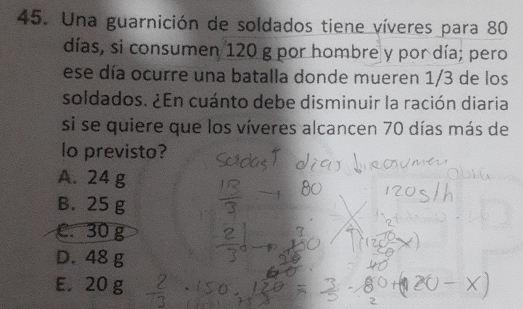 45. Una guarnición de soldados tiene víveres para 80
días, si consumen 120 g por hombre y por día; pero
ese día ocurre una batalla donde mueren 1/3 de los
soldados. ¿En cuánto debe disminuir la ración diaria
si se quiere que los víveres alcancen 70 días más de
lo previsto?
A. 24 g
B. 25 g
C. 30 g
D. 48 g
E. 20 g
dias
80
120g/h
2/3 · 150 · 120 = 3/3 · 80